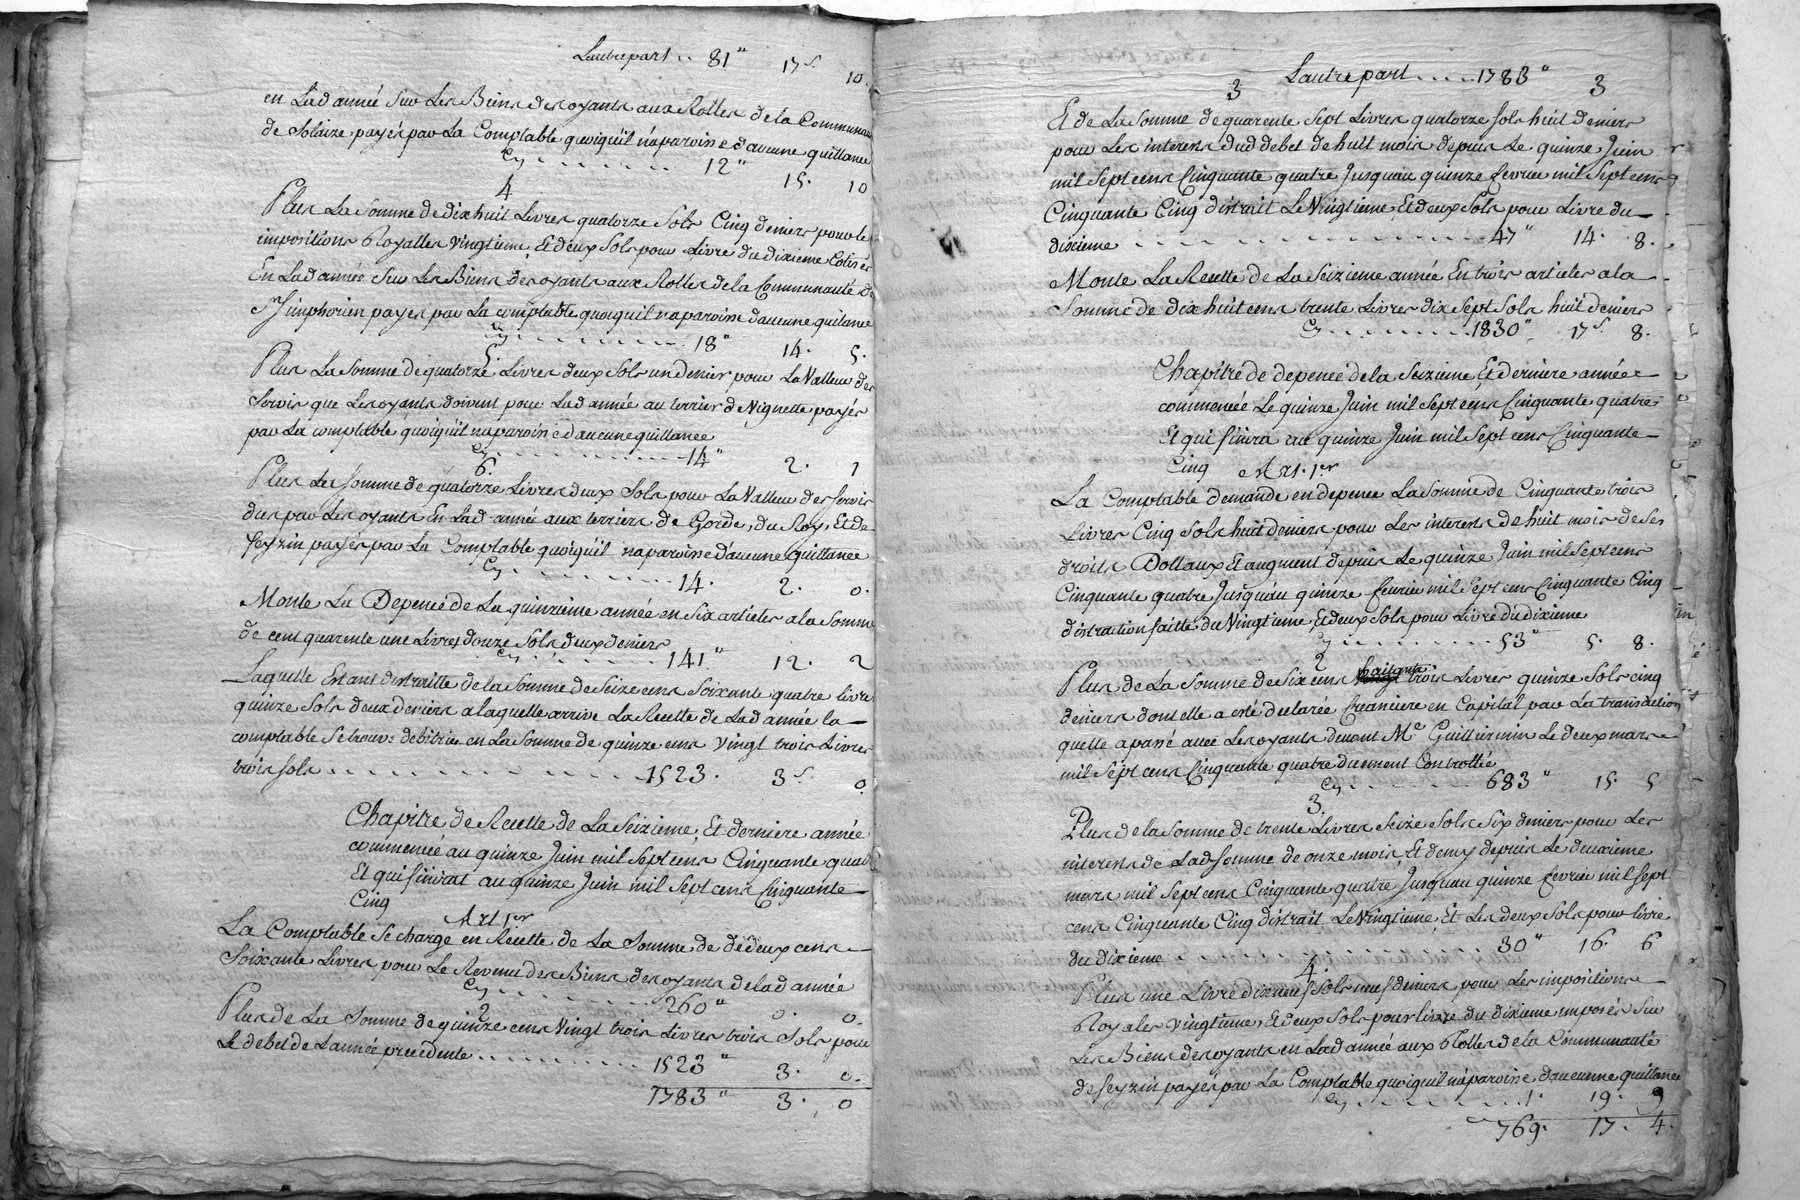 Lautrepart .. 81" 17s. 10.
en Lad année Sur Les Biens desoyants aux Rolles de la Communauté
de Solaize payés par La Comptable quoiquil naparoisse d'aucune quittance
Cy . . . . . . . 12" 15. 10
4
Plus La Somme de dix huit Livres quatorze Sols Cinq deniers pour le
impositions Royalles Vingtieme, Et deux Sols pour Livre du dixieme Cotisés
En Lad année Sur Les Biens desoyants aux Rolles de la Communauté de
St Simphorien payes par La comptable quoiquil naparoisse daucune quitance
Cy . . . . . . . 18" 14. 5.
5.
Plus La Somme de quatorze Livres deux Sols un denier pour La Valleur des
Servis que Lesoyants doivent pour Lad année au terrier de Vignette payés
par La comptable quoiquil naparoisse d'aucune quittance
Cy . . . . . . . 14" 2. 1
6.
Plus La Somme de quatorze Livres deux Sols pour La Valleur des Servis
dus par Lesoyants En Lad année aux terriers de Gorde, du Roy, Et de
feyzin payés par La Comptable quoiquil naparoisse d'aucune quittance
Cy . . . . . . . 14. 2. 0.
Monte La Depence de La quinzieme année en Six articles a la Somme
de cent quarente une Livres douze Sols deux deniers
Cy . . . . . . . 141" 12. 2
Laquelle Estant distraitte de la Somme de Seize cens Soixante quatre livres
quinze Sols deux deniers a laquelle arrive La Recette de Lad année la
comptable Se trouve debitrice en La Somme de quinze cens Vingt trois Livres
trois Sols . . . . . . . 1523. 3s. 0
Chapitre de Recette de La Seizieme, Et derniere année
commencée au quinze Juin mil Sept cens Cinquante quatre
Et qui finirat au quinze Juin mil Sept cens Cinquante
Cinq
Art 1er
La Comptable Se charge en Recette de La Somme de dedeux cens
Soixante Livres pour Le Revenu des Biens desoyants de lad année
Cy . . . . . . . 260" 0. 0.
2
Plus de La Somme de quinze cens Vingt trois Livres trois Sols pour
Le debet de Lannée precedente . . . . . . . 1523" 3. 0.
1783" 3. 0
Lautre part . . . . . 1783" 3
3
Et de La Somme de quarente Sept Livres quatorze Sols huit deniers
pour Les interests dud debet de huit mois depuis Le quinze Juin
mil Sept cens Cinquante quatre Jusquau quinze fevrier mil Sept cens
Cinquante Cinq distrait Le Vingtieme, Et deux Sols pour Livre du
dixieme . . . . . . . 47" 14. 8.
Monte La Recette de La Seizieme année En trois articles a la
Somme de dix huit cens trente Livres dix Sept Sols huit deniers
Cy . . . . . . . 1830" 17s. 8.
Chapitre de depence de la Seizieme Et derniere année
commencée Le quinze Juin mil Sept cens Cinquante quatre
Et qui finira au quinze Juin mil Sept cens Cinquante
Cinq Art. 1er
La Comptable demande en depence La Somme de Cinquante trois
Livres Cinq Sols huit deniers pour Les interests de huit mois de Ses
droits Dottaux Et augment depuis Le quinze Juin mil Sept cens
Cinquante quatre Jusquau quinze fevrier mil Sept cens Cinquante Cinq
distraction faitte du Vingtieme, Et deux Sols pour Livre du dixieme
Cy . . . . . . . 53" 5. 8.
2
Plus de La Somme de Six cens huitante trois Livres quinze Sols cinq
deniers dont elle a esté declarée Creanciere en Capital par La transaction
quelle a passé avec Lesoyants devant Me Guillermin Le deux mars
mil Sept cens Cinquante quatre duement Controllée
Cy . . . . . . . 683" 15. 5
3.
Plus de la Somme de trente Livres Seize Sols Six deniers pour Les
interests de Lad Somme de onze mois, Et demy depuis Le deuxieme
mars mil Sept cens Cinquante quatre Jusquau quinze fevrier mil Sept
cens Cinquante Cinq distrait Le Vingtieme, Et Les deux Sols pour livre
du dixieme . . . . . . . 30" 16. 6
4.
Plus une Livre dixneuf Sols neuf deniers pour Les impositions
Royales Vingtieme, Et deux Sols pour livre du dixieme imposés Sur
Les Biens desoyants en Lad année aux Rolles de la Communauté
de feyzin payés par La Comptable quoiquil naparoisse daucunne quittance
Cy . . . . . . . 1. 19. 9
769. 17. 4.